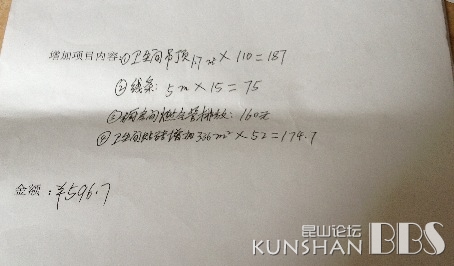 增加项目内容:① 卫生间吊顶 1.7 m² × 110 = 187
② 线条: 5 m × 15 = 75
管 : 160元
④ 卫生间贴砖增加 3.36 m² × 52 = 174.7
金额: ¥596.7
昆山论坛
KUNSHAN BBS